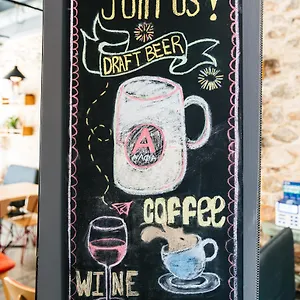 JOIN US!
DRAFT BEER
A
COFFEE
WINE